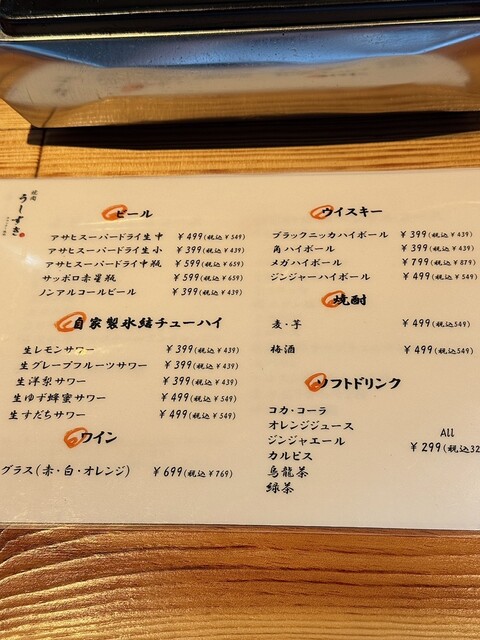 焼肉
うしすき
ビール
アサヒスーパードライ生中 ¥499(税込¥549)
アサヒスーパードライ生小 ¥399(税込¥439)
アサヒスーパードライ中瓶 ¥599(税込¥659)
サッポロ赤星瓶 ¥599(税込¥659)
ノンアルコールビール ¥399(税込¥439)
自家製氷結チューハイ
生レモンサワー ¥399(税込¥439)
生グレープフルーツサワー ¥399(税込¥439)
生洋梨サワー ¥399(税込¥439)
生ゆず蜂蜜サワー ¥499(税込¥549)
生すだちサワー ¥499(税込¥549)
ワイン
グラス(赤・白・オレンジ) ¥699(税込¥769)
ウイスキー
ブラックニッカハイボール ¥399(税込¥439)
角ハイボール ¥399(税込¥439)
メガハイボール ¥799(税込¥879)
ジンジャーハイボール ¥499(税込¥549)
焼酎
麦・芋 ¥499(税込549)
梅酒 ¥499(税込549)
ソフトドリンク
コカ・コーラ
オレンジジュース
ジンジャエール
カルピス
烏龍茶
緑茶
All
¥299(税込32